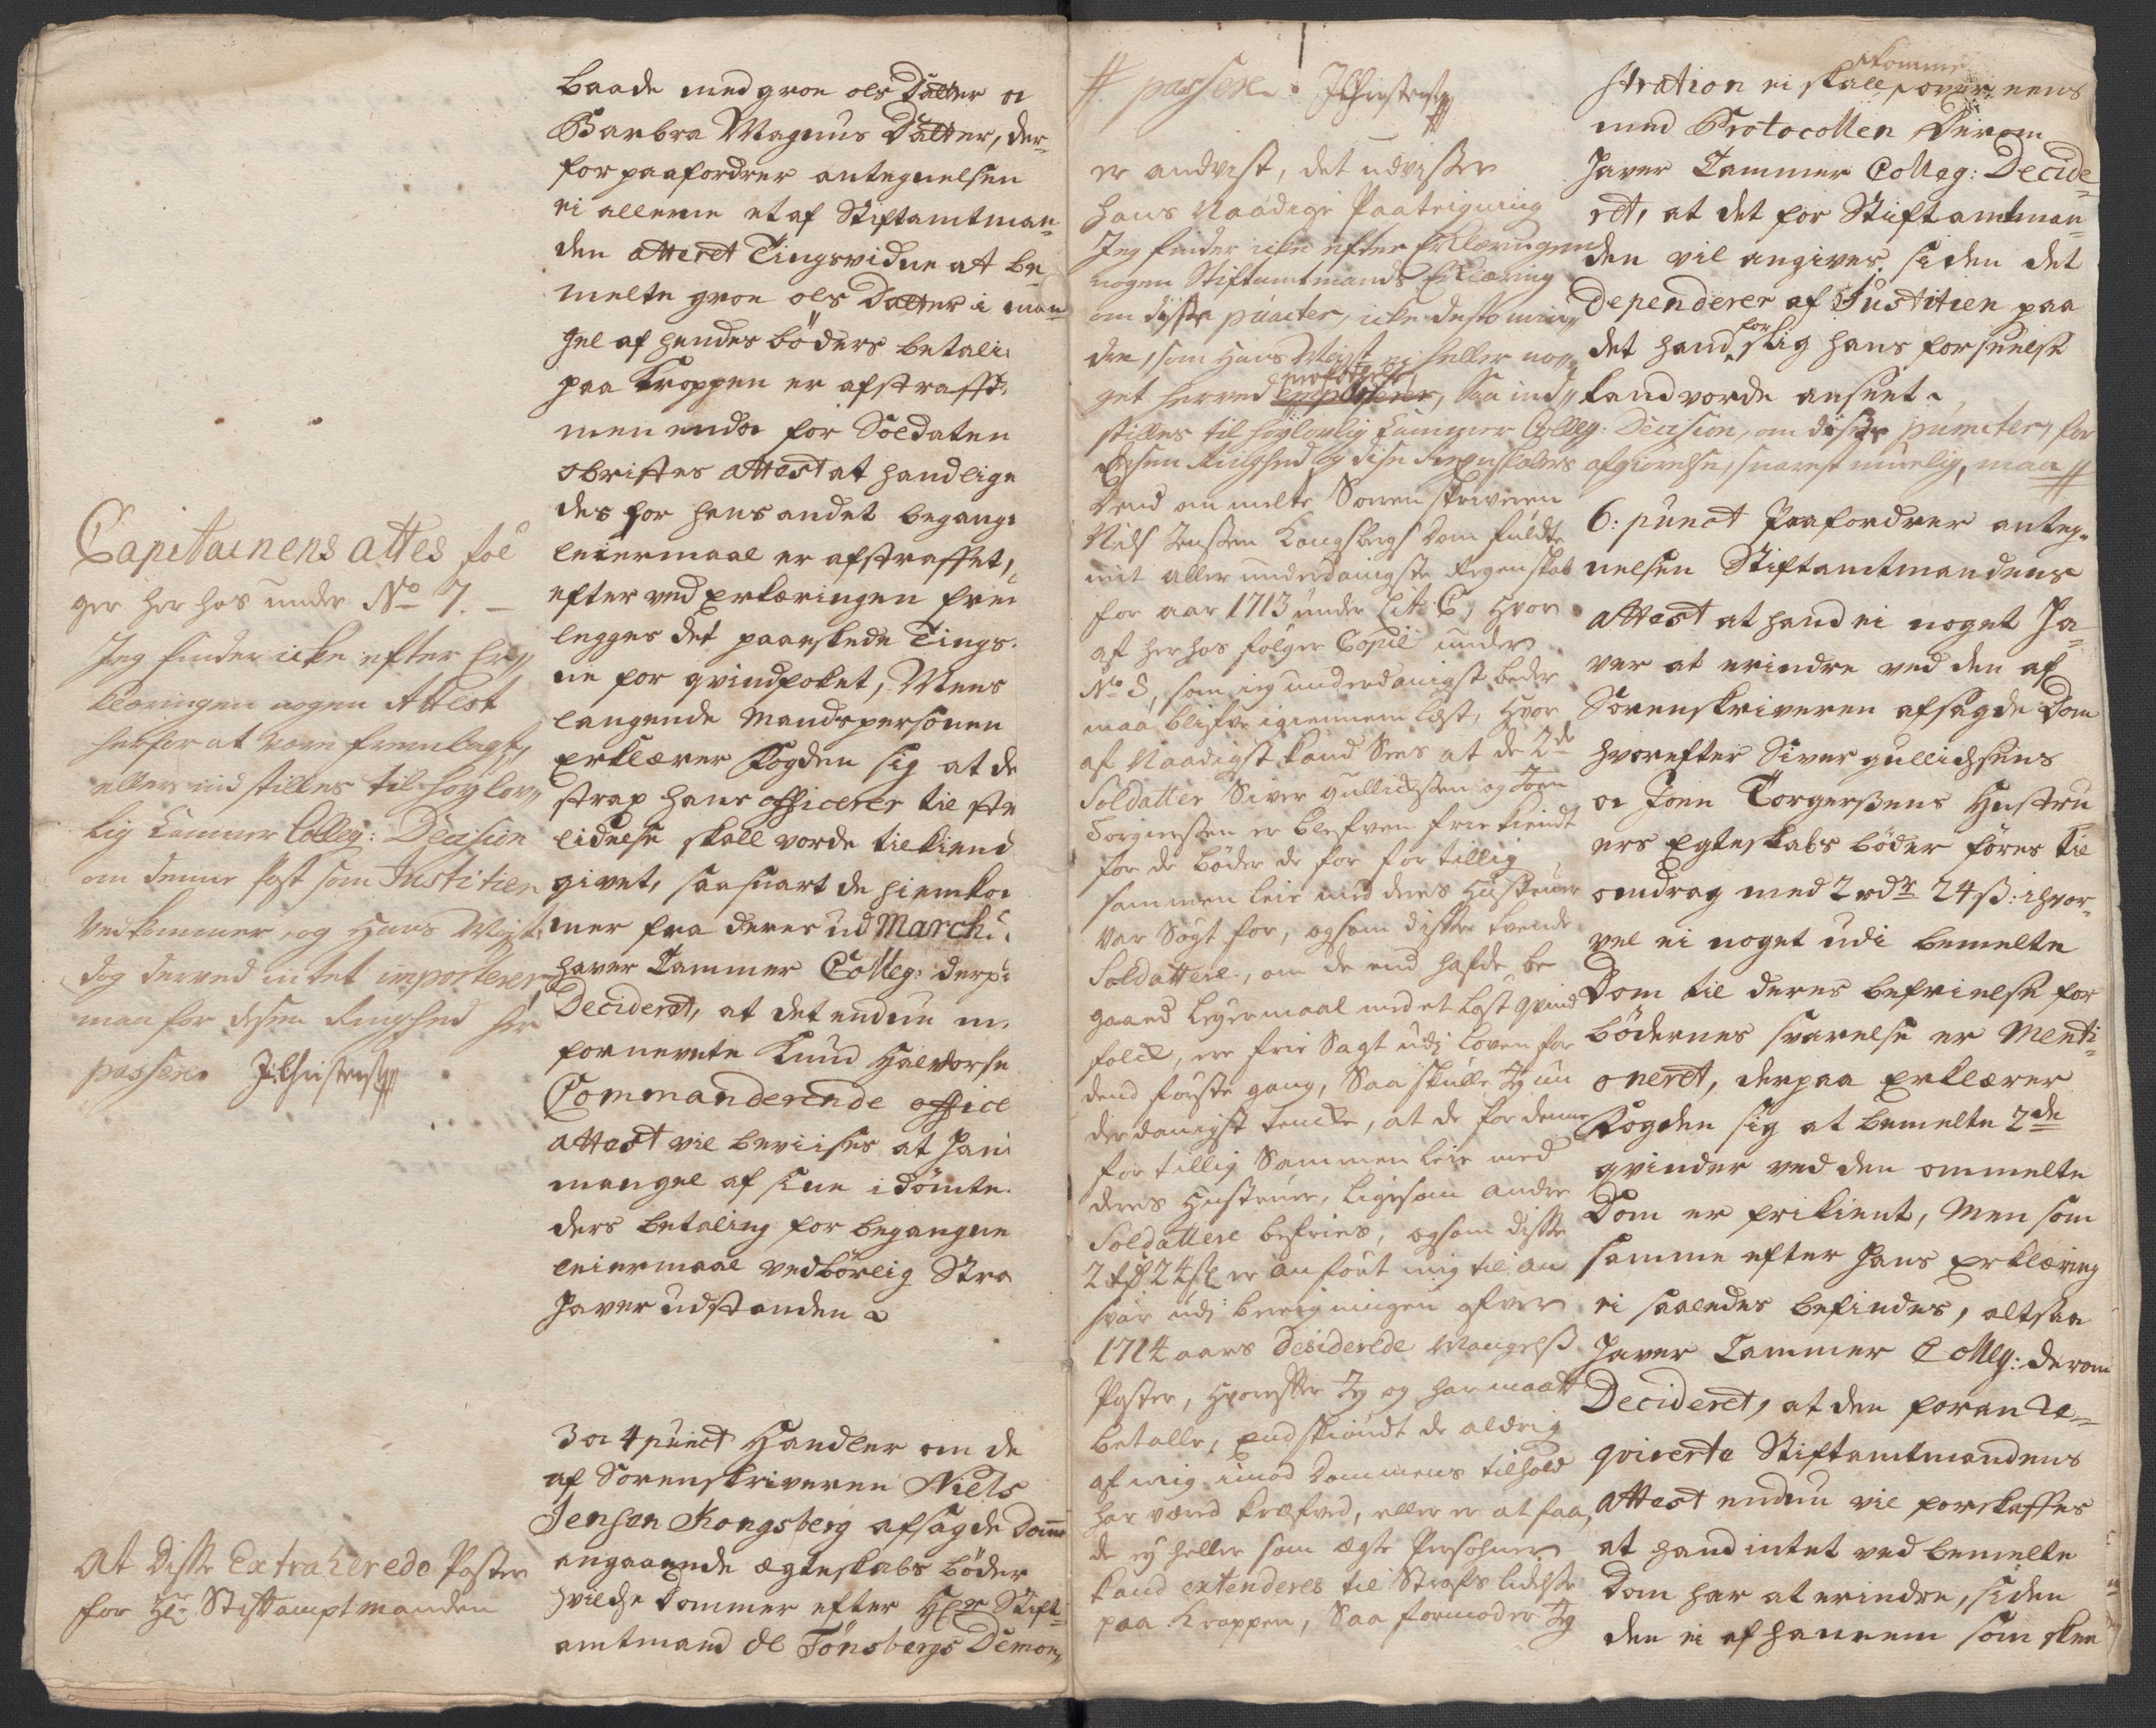 Capitainens attes föl
ger her hos under No 7. –
Jeg finder icke efter Er„
klæringen nogen Attest
herfor at være fremlagt,
ellers indstilles til høylov„
lig Cammer Colleg: Decision
om denne Post som Justitien
vedkommer, og Hans Mayst:
dog derved intet importerer,
maa for desen Ringhed her
passere JChristensen
At disse Extraherede Poster
for Hr Stiftamptmanden
baade med groe ols Datter oc
Barbra Magnus Datter, der„
for paafordrer antegnelsen
ei allene et af Stiftamtman„
den atteret Tingsvidne at be
melte groe ols Datter i man
gel af hendes böders betali:
paa Kroppen er afstraffet:
men endoc for Soldaten
obristes attest at handlige
des for hans andet begange
leiermaal er afstraffet,
efter ved Erklæringen frei
legges det paaeskede Tings.
ne for qvindfolket, Mens
langende Mandspersonen
Erklærer Fogden sig at de
straf hans officerer til ste
lidelse skall vorde tilkiend
givet, saasnart de hiemko:
mer fra deres ud March:
haver Cammer Colleg: derp:
Decideret, at det endnu m.
fornevnte Knud Halvorse
Commanderende office
attest vil beviises at han i
mangel af sine idömte
ders betaling for begangne
leiermaal vedbörlig Stra
haver udstanden
3 oc 4 punct Handler om de
af Sorenskriveren Niels
Jensen Kongsberg afsagde Domme
angaaende ægteskabs böder
hvilche Dommer efter Hr Stift„
amtmand de Tönsbergs Demon„
# passere. JChristensen
er anvist, det udvisser
hans Naadige Paateigning
Jeg finder icke efter Erklæringen
nogen Stiftamtmands Erklæring
om disse puncter, icke desto min„
dre, som Hans Mayst ey heller no„
get herved profiterer, Saa ind„
stilles til høylovlig Cammer Colleg: Decision, om disse puncter, for
desen Ringhed og dise Regnskabers afgiørelse, snarest muelig, maa #
Dend ommelte Sorenskriveren
Niels Jenssen Kongsbergs Dom fuldte
mit aller underdanigste Regenskab
for aar 1713 under Lit: C, hvor
af her hos følger Copie under
No 8, som ieg underdanigst beder
maa blifve igiennemlæst, hvor
af Naadigst kand Sees at de 2de
Soldatter Siver gullichssen og Joen
Torgierssen er blefven frie kiendt
for de böder de for for tillig
sammen leie med deres Hustruer
var Søgt for, og som disse tvende
Soldattere, om de end hafde be
gaaed Leyermaal med et løst qvind
folck, ere frie Sagt udj loven for
dend første gang, Saa skulle Jeg un
derdanigst tencke, at de for denne
for tillig Sammen leie med
deres Hustruer, ligesom andre
Soldattere befries, og som disse
2 rd 24 s er anført mig til an
svar udj beregningen ofver
1714 aars Desiderede Mangelss
Poster, hvorefter Jeg og har maatt
betalle, endskiøndt de aldrig
af mig imod Dommens tilhold
har været kræfved, eller er at faa,
de ey heller som ægte Persohner
kand extenderes til Strafs lidelse
paa Kroppen, Saa formoder Jeg
stration ei skall komme over eens
med Protocollen Derom
haver Cammer Colleg: Decide„
ret, at det for Stiftamtman„
den vil angives, siden det
Dependerer af Justitien paa
det hand for slig hans forseelse
kand vorde anseet.
6: punct Paafordrer anteg„
nelsen Stiftamtmandens
attest at hand ei noget ha„
ver at erindre ved den af
Sorenskriveren afsagde Dom
hvorefter Siver gullichsens
oc Joen Torgersens Hustru
ers Egteskabs böder föres til
omdrag med 2 rdr 24 ß: ihvor„
vel ei noget udi bemelte
Dom til deres befrielse for
bödernes svarelse er Menti„
oneret, derpaa Erklærer
Fogden sig at bemelte 2de
qvinder ved den ommelte
Dom er frikient, Men som
samme efter hans Erklæring
ei saaledes befindes, altsaa
haver Cammer Colleg: derom
Decideret, at den foran Re„
qvirerte Stiftamtmandens
attest endnu vil forskaffes
at hand intet ved bemelte
Dom har at erindre, siden
den ei af hannem som skee